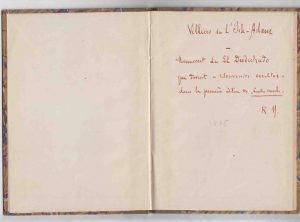 Villiers de L'Isle-Adam
—
Manuscrit de El Desdichado
qui devint « Souvenirs occultes »
dans la première édition des Contes cruels.
R. M.